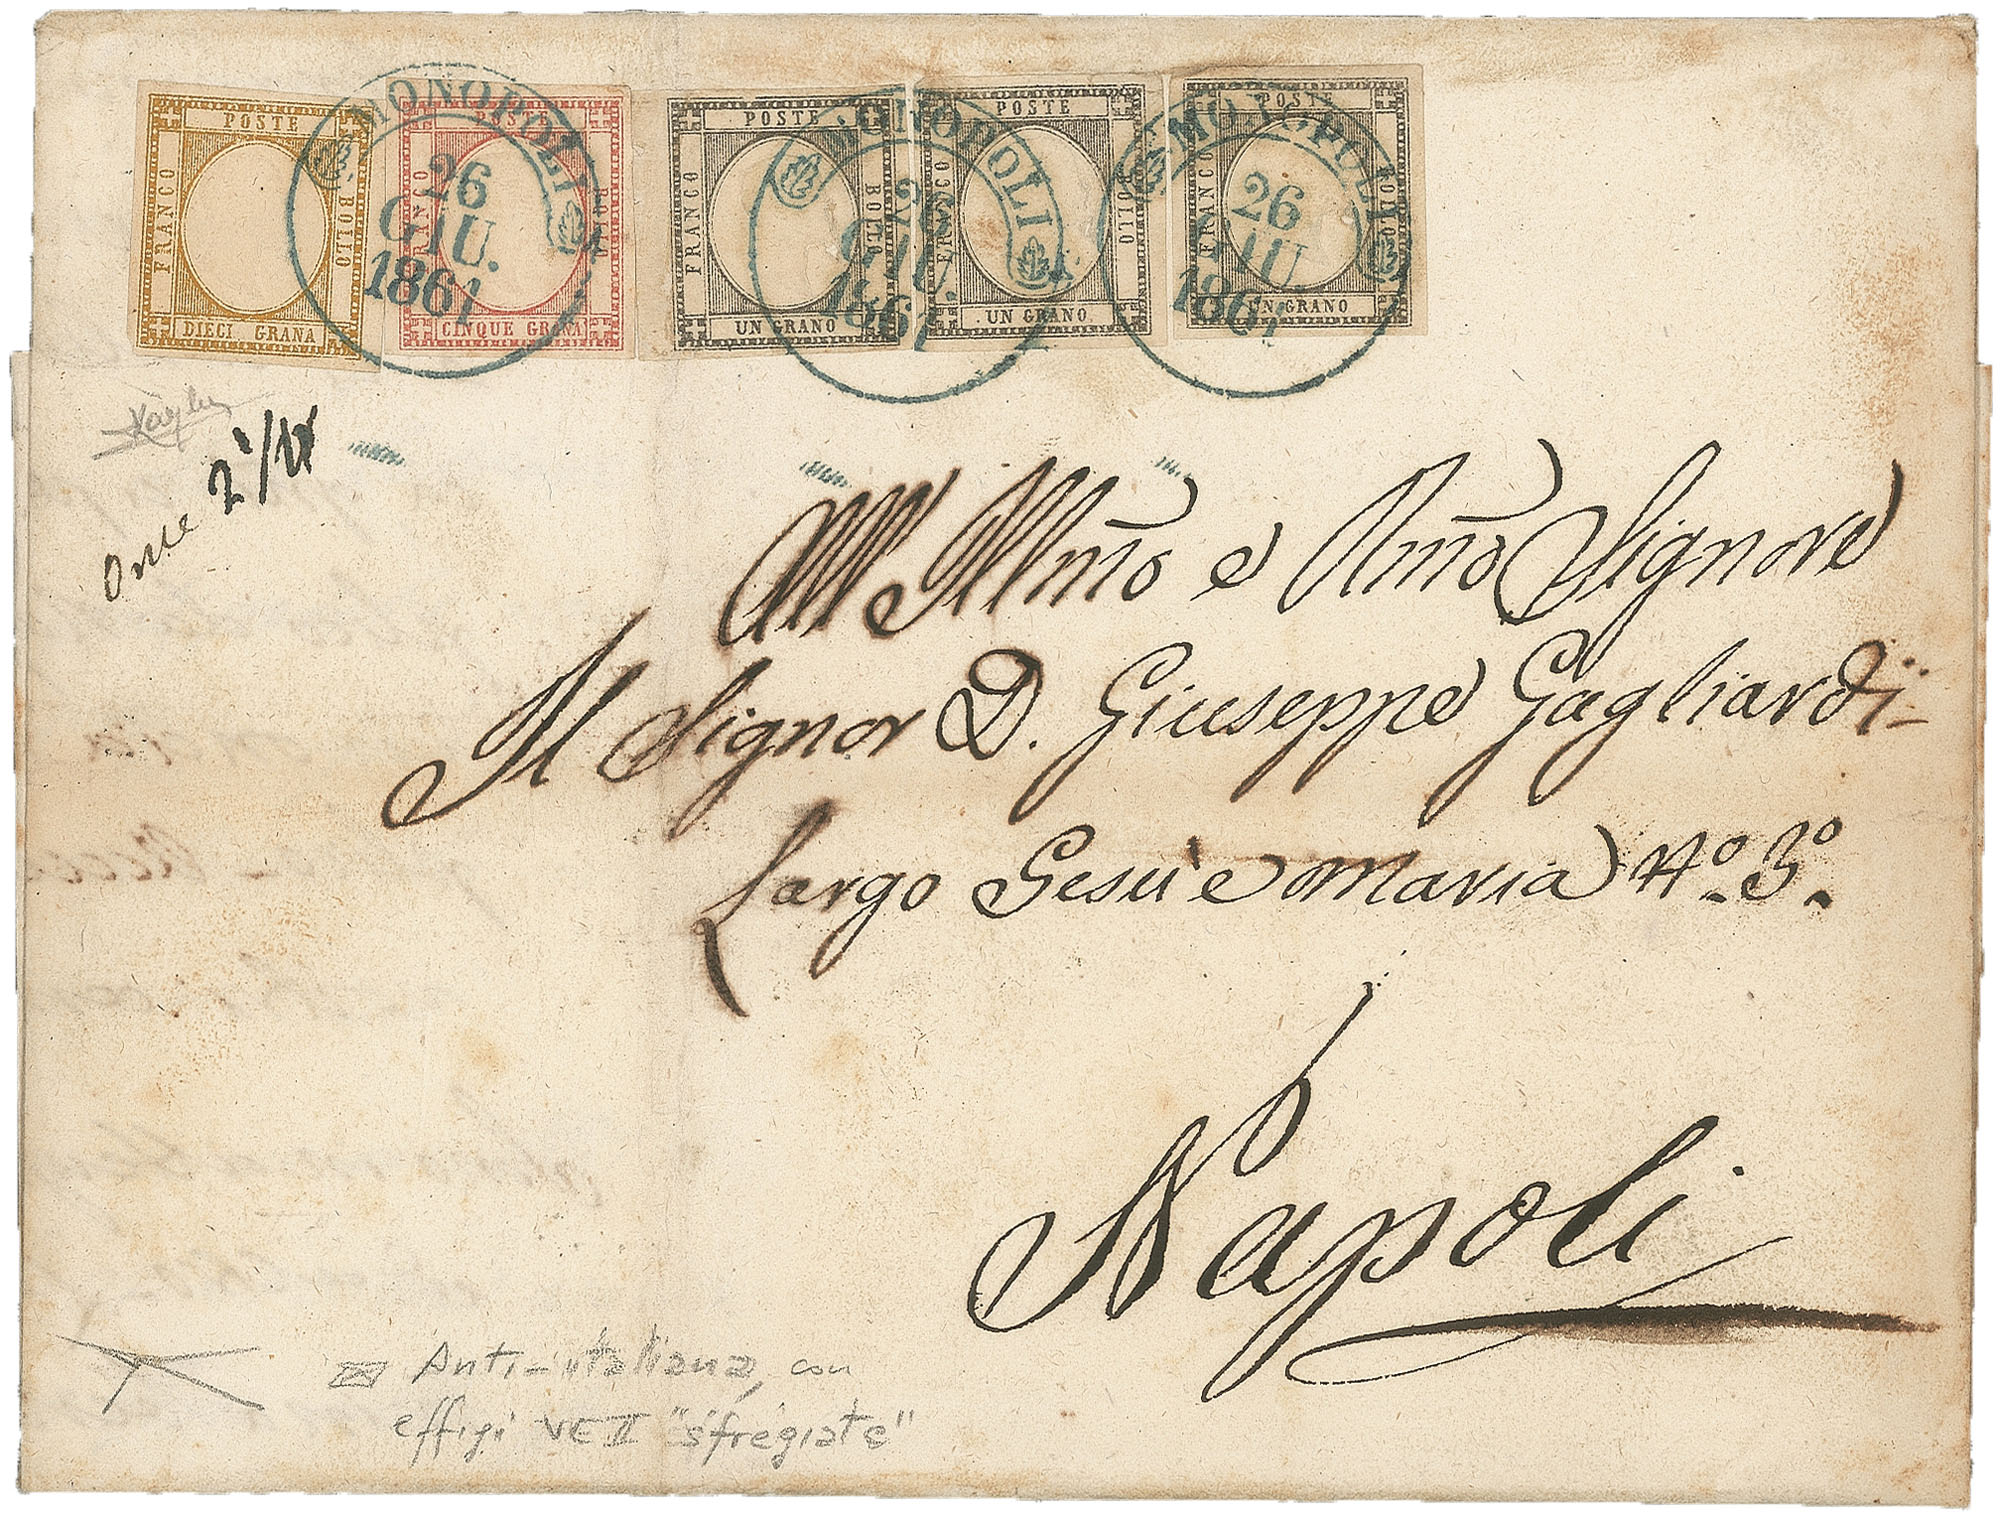 POSTE
FRANCO
BOLLO
DIECI GRANA
POSTE
FRANCO
BOLLO
CINQUE GRANA
POSTE
FRANCO
BOLLO
UN GRANO
POSTE
FRANCO
BOLLO
UN GRANO
POSTE
FRANCO
BOLLO
UN GRANO
MONOPOLI
26
GIU.
1861
MONOPOLI
26
GIU.
1861
MONOPOLI
26
GIU.
1861
Once 2
All' Illmo e Rmo Signore
Il Signor D. Giuseppe Gagliardi
Largo Gesù e Maria No. 3o.
Napoli
Anti-italiana, con
effigi VE II "sfregiate"